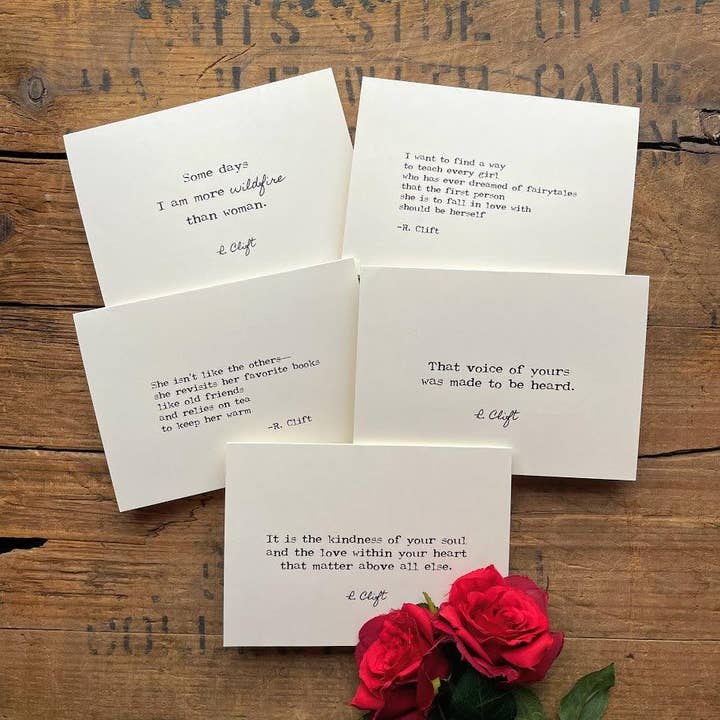 Some days
I am more wildfire
than woman.
R. Clift
I want to find a way
to teach every girl
who has ever dreamed of fairytales
that the first person
she is to fall in love with
should be herself
-R. Clift
She isn't like the others—
she revisits her favorite books
like old friends
and relies on tea
to keep her warm
-R. Clift
That voice of yours
was made to be heard.
R. Clift
It is the kindness of your soul
and the love within your heart
that matter above all else.
R. Clift